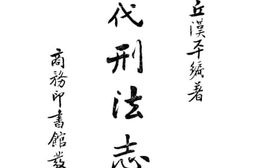 丘漢平編著
代刑法志
商務印書館發